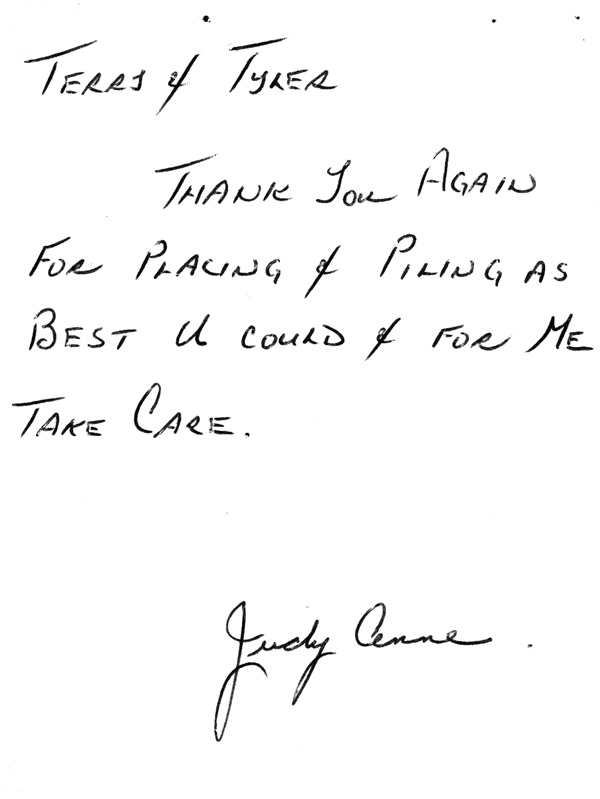 TERRY & TYLER
THANK YOU AGAIN
FOR PLACING & PILING AS
BEST U COULD & FOR ME
TAKE CARE.
Judy Anne .